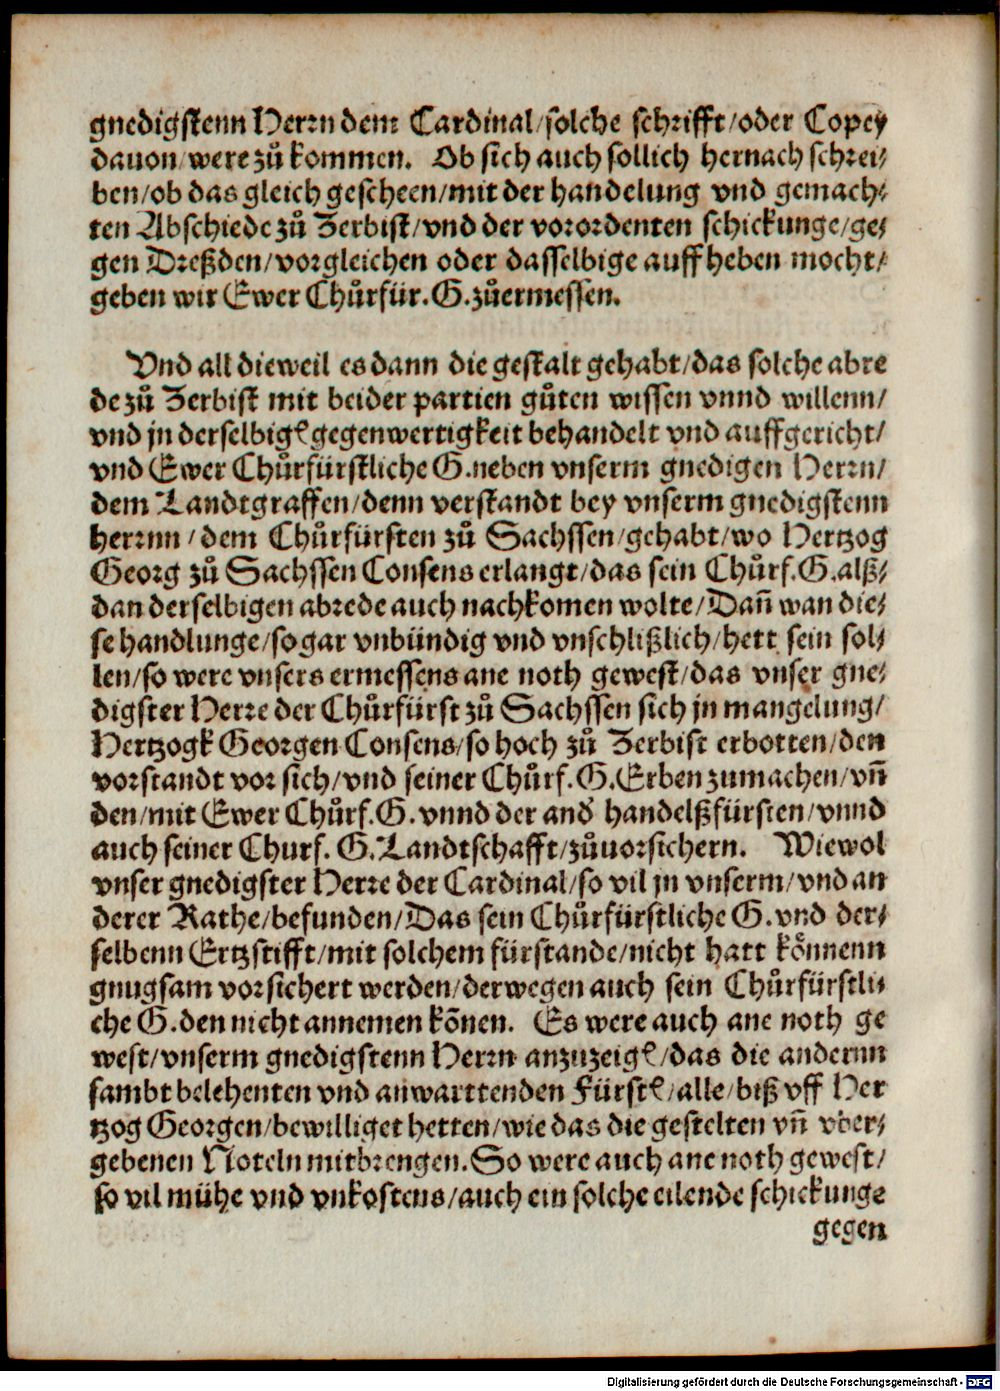 gnedigstenn Herrn dem Cardinal/solche schrifft/oder Copey
dauon/were zů kommen. Ob sich auch sollich hernach schrei⸗
ben/ob das gleich gescheen/mit der handelung vnd gemach⸗
ten Abschiede zů Zerbist/vnd der vorordenten schickunge/ge⸗
gen Dreßden/vorgleichen oder dasselbige auffheben mocht/
geben wir Ewer Chůrfür.G.zůermessen.
Vnd all dieweil es dann die gestalt gehabt/das solche abre
de zů Zerbist mit beider partien gůten wissen vnnd willenn/
vnd jn derselbigꝭ gegenwertigkeit behandelt vnd auffgericht/
vnd Ewer Chůrfürstliche G.neben vnserm gnedigen Herrn/
dem Landtgraffen/denn verstandt bey vnserm gnedigstenn
herrnn/dem Chůrfürsten zů Sachssen/gehabt/wo Hertzog
Georg zů Sachssen Consens erlangt/das sein Chůrf.G.alß⸗
dan derselbigen abrede auch nachkomen wolte/Dañ wan die⸗
se handlunge/so gar vnbündig vnd vnschlißlich/hett sein sol⸗
len/so were vnsers ermessens ane noth gewest/das vnser gne⸗
digster Herre der Chůrfürst zů Sachssen sich jn mangelung/
Hertzogk Georgen Consens/so hoch zů Zerbist erbotten/den
vorstandt vor sich/vnd seiner Chůrf.G.Erben zumachen/vñ
den/mit Ewer Chůrf.G.vnnd der and̕ handelßfürsten/vnnd
auch seiner Churf. G.Landtschafft/zůuorsichern. Wiewol
vnser gnedigster Herre der Cardinal/so vil jn vnserm/vnd an
derer Rathe/befunden/Das sein Chůrfürstliche G.vnd der⸗
selbenn Ertzstifft/mit solchem fürstande/nicht hatt kőnnenn
gnugsam vorsichert werden/derwegen auch sein Chůrfürstli⸗
che G.den nicht annemen kõnen. Es were auch ane noth ge
west/vnserm gnedigstenn Herrn anzuzeigꝭ/das die andernn
sambt belehenten vnd anwarttenden Fürstꝭ/alle/biß vff Her
tzog Georgen/bewilliget hetten/wie das die gestelten vñ vber⸗
gebenen Noteln mitbrengen.So were auch ane noth gewest/
so vil mühe vnd vnkostens/auch ein solche eilende schickunge
gegen
Digitalisierung gefördert durch die Deutsche Forschungsgemeinschaft - DFG